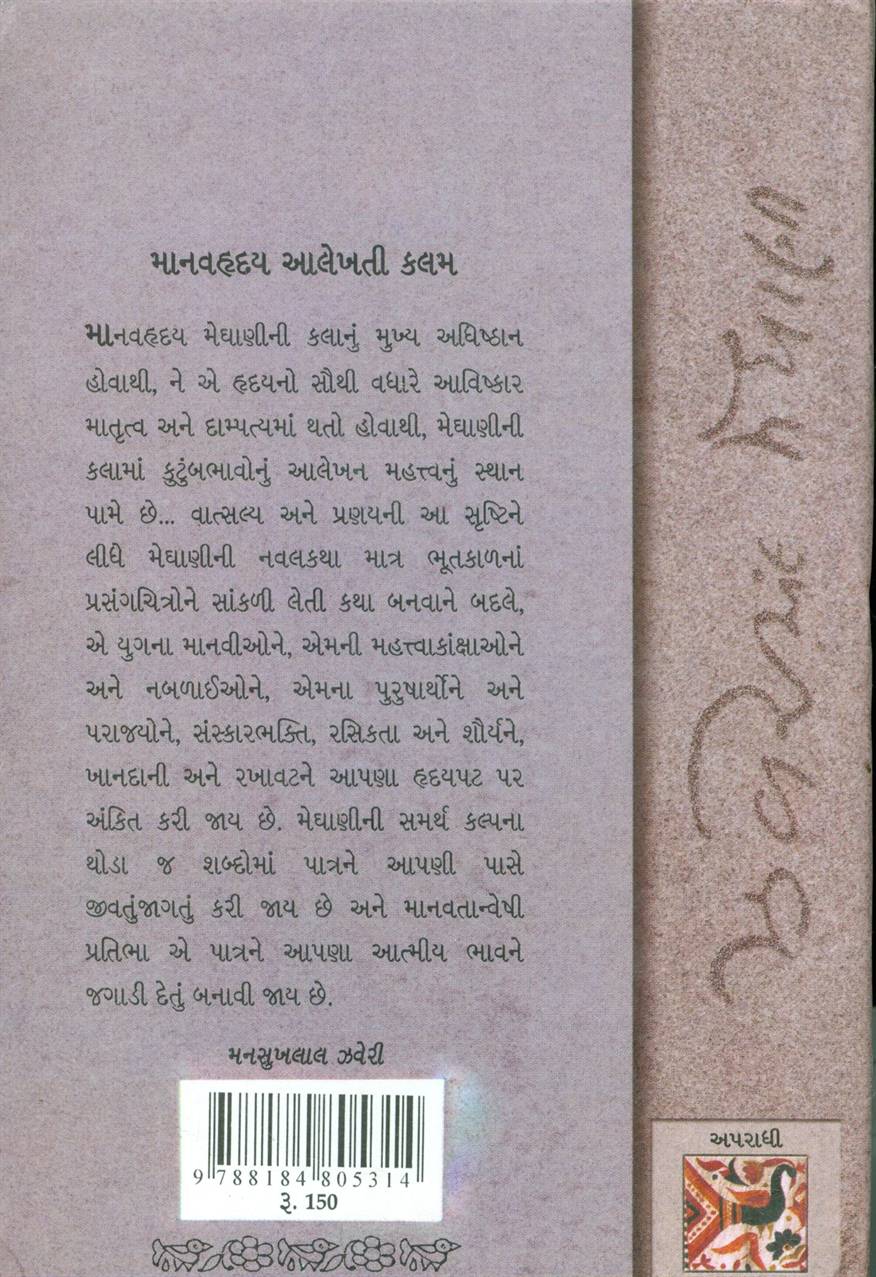 માનવહૃદય આલેખતી કલમ
માનવહૃદય મેઘાણીની કલાનું મુખ્ય અધિષ્ઠાન
હોવાથી, ને એ હૃદયનો સૌથી વધારે આવિષ્કાર
માતૃત્વ અને દામ્પત્યમાં થતો હોવાથી, મેઘાણીની
કલામાં કુટુંબભાવોનું આલેખન મહત્ત્વનું સ્થાન
પામે છે... વાત્સલ્ય અને પ્રણયની આ સૃષ્ટિને
લીધે મેઘાણીની નવલકથા માત્ર ભૂતકાળનાં
પ્રસંગચિત્રોને સાંકળી લેતી કથા બનવાને બદલે,
એ યુગના માનવીઓને, એમની મહત્ત્વાકાંક્ષાઓને
અને નબળાઈઓને, એમના પુરુષાર્થોને અને
પરાજયોને, સંસ્કારભક્તિ, રસિકતા અને શૌર્યને,
ખાનદાની અને રખાવટને આપણા હૃદયપટ પર
અંકિત કરી જાય છે. મેઘાણીની સમર્થ કલ્પના
થોડા જ શબ્દોમાં પાત્રને આપણી પાસે
જીવતુંજાગતું કરી જાય છે અને માનવતાન્વેષી
પ્રતિભા એ પાત્રને આપણા આત્મીય ભાવને
જગાડી દેતું બનાવી જાય છે.
મનસુખલાલ ઝવેરી
9 788184 805314
રૂ. 150
ઝવેરચંદ મેઘાણી
અપરાધી